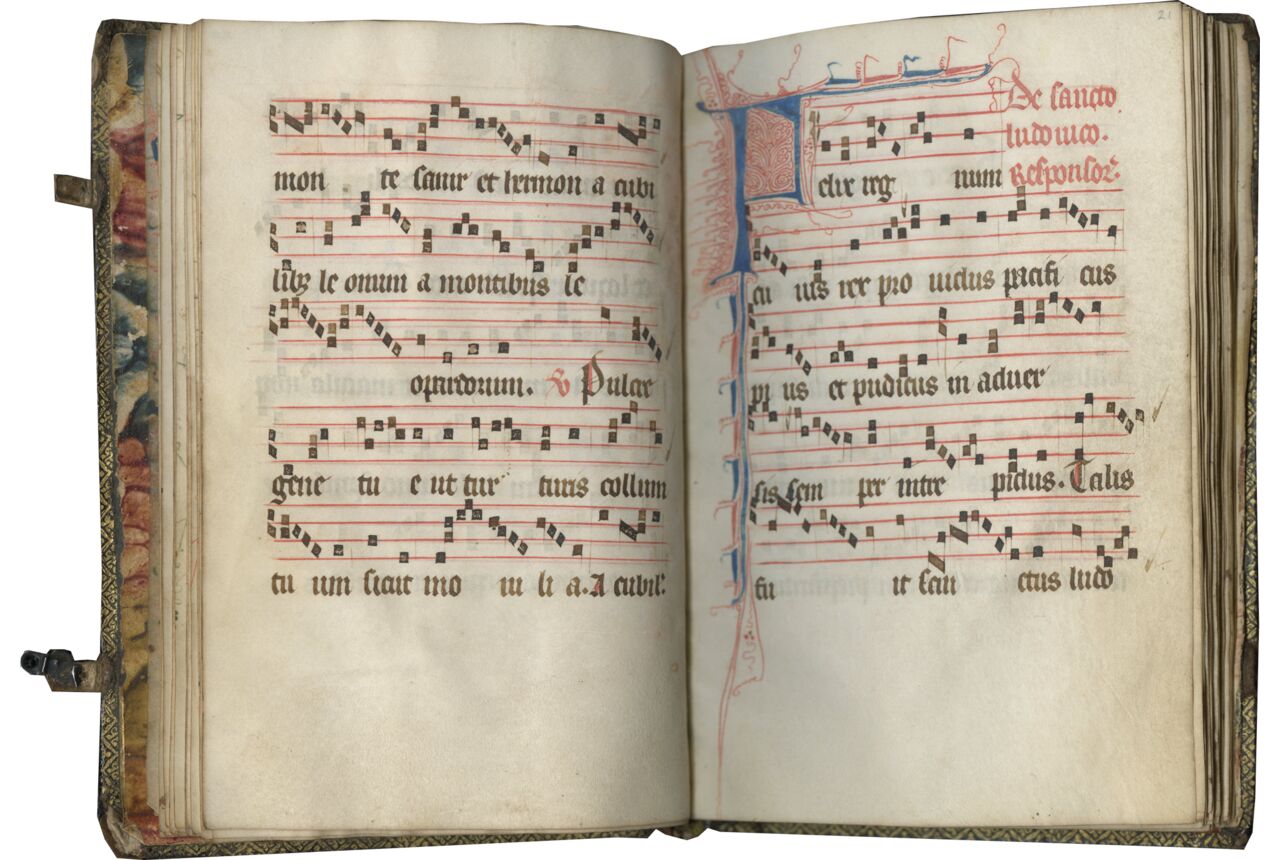 mon te sanir et hermon a cubi
lib3 le onum a montibus le
opardorum. ℣ Pulcre
gene tu e ut tur turis collum
tu um sicut mo ni li a. A cubil'.
21
De sancto
ludouico.
Responsor'.
Felix reg num
cu ius rex pro uidus pacifi cus
pi us et pudicus in aduer
sis sem per intre pidus. Talis
fu it san ctus ludo